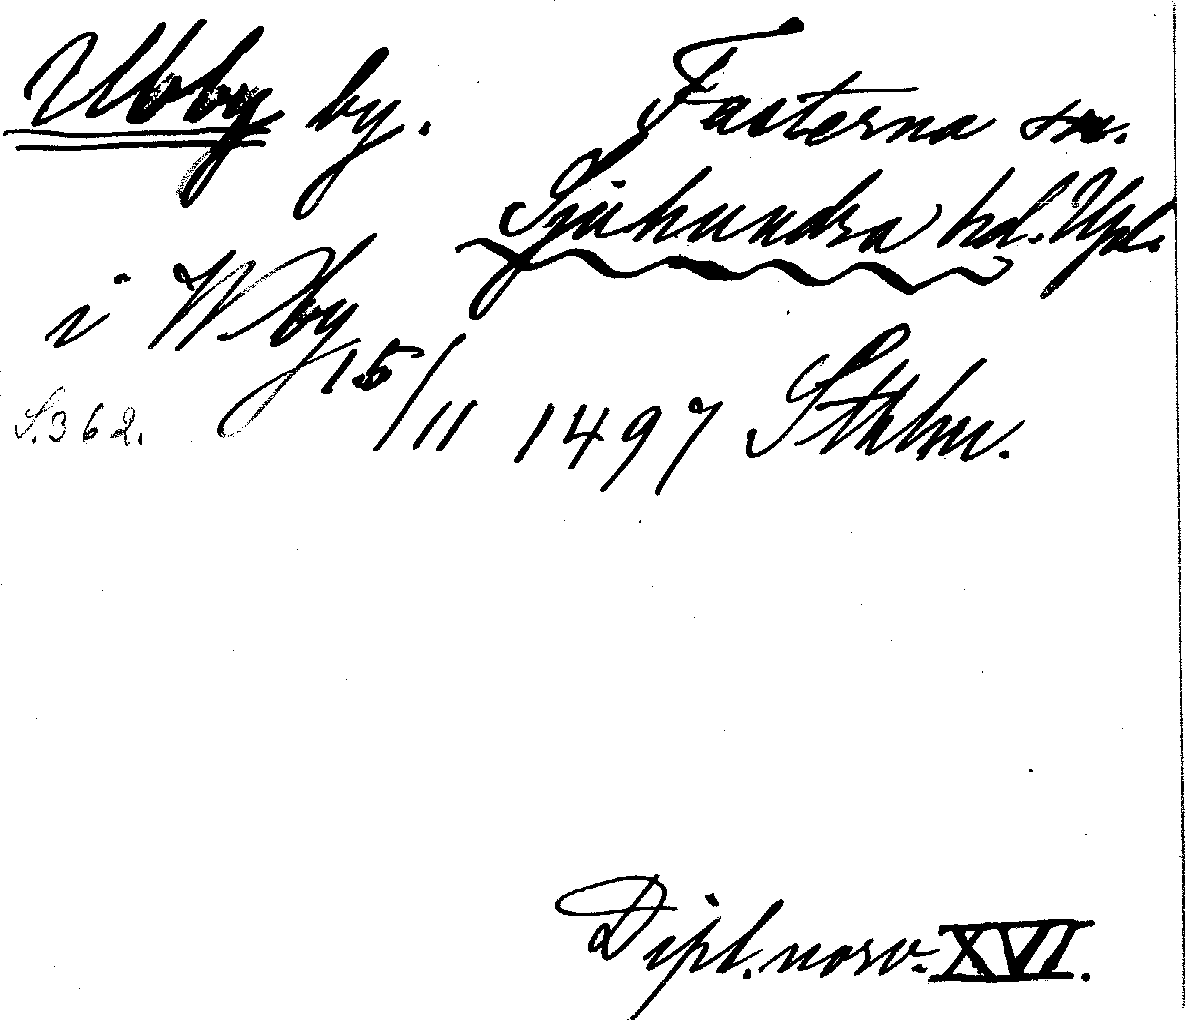 Ubby by. Fasterna sn.
Sjuhundra hd. Upl.
i Wby
15/11 1497 Sthlm.
S. 362.
Dipl. norv. XVI.